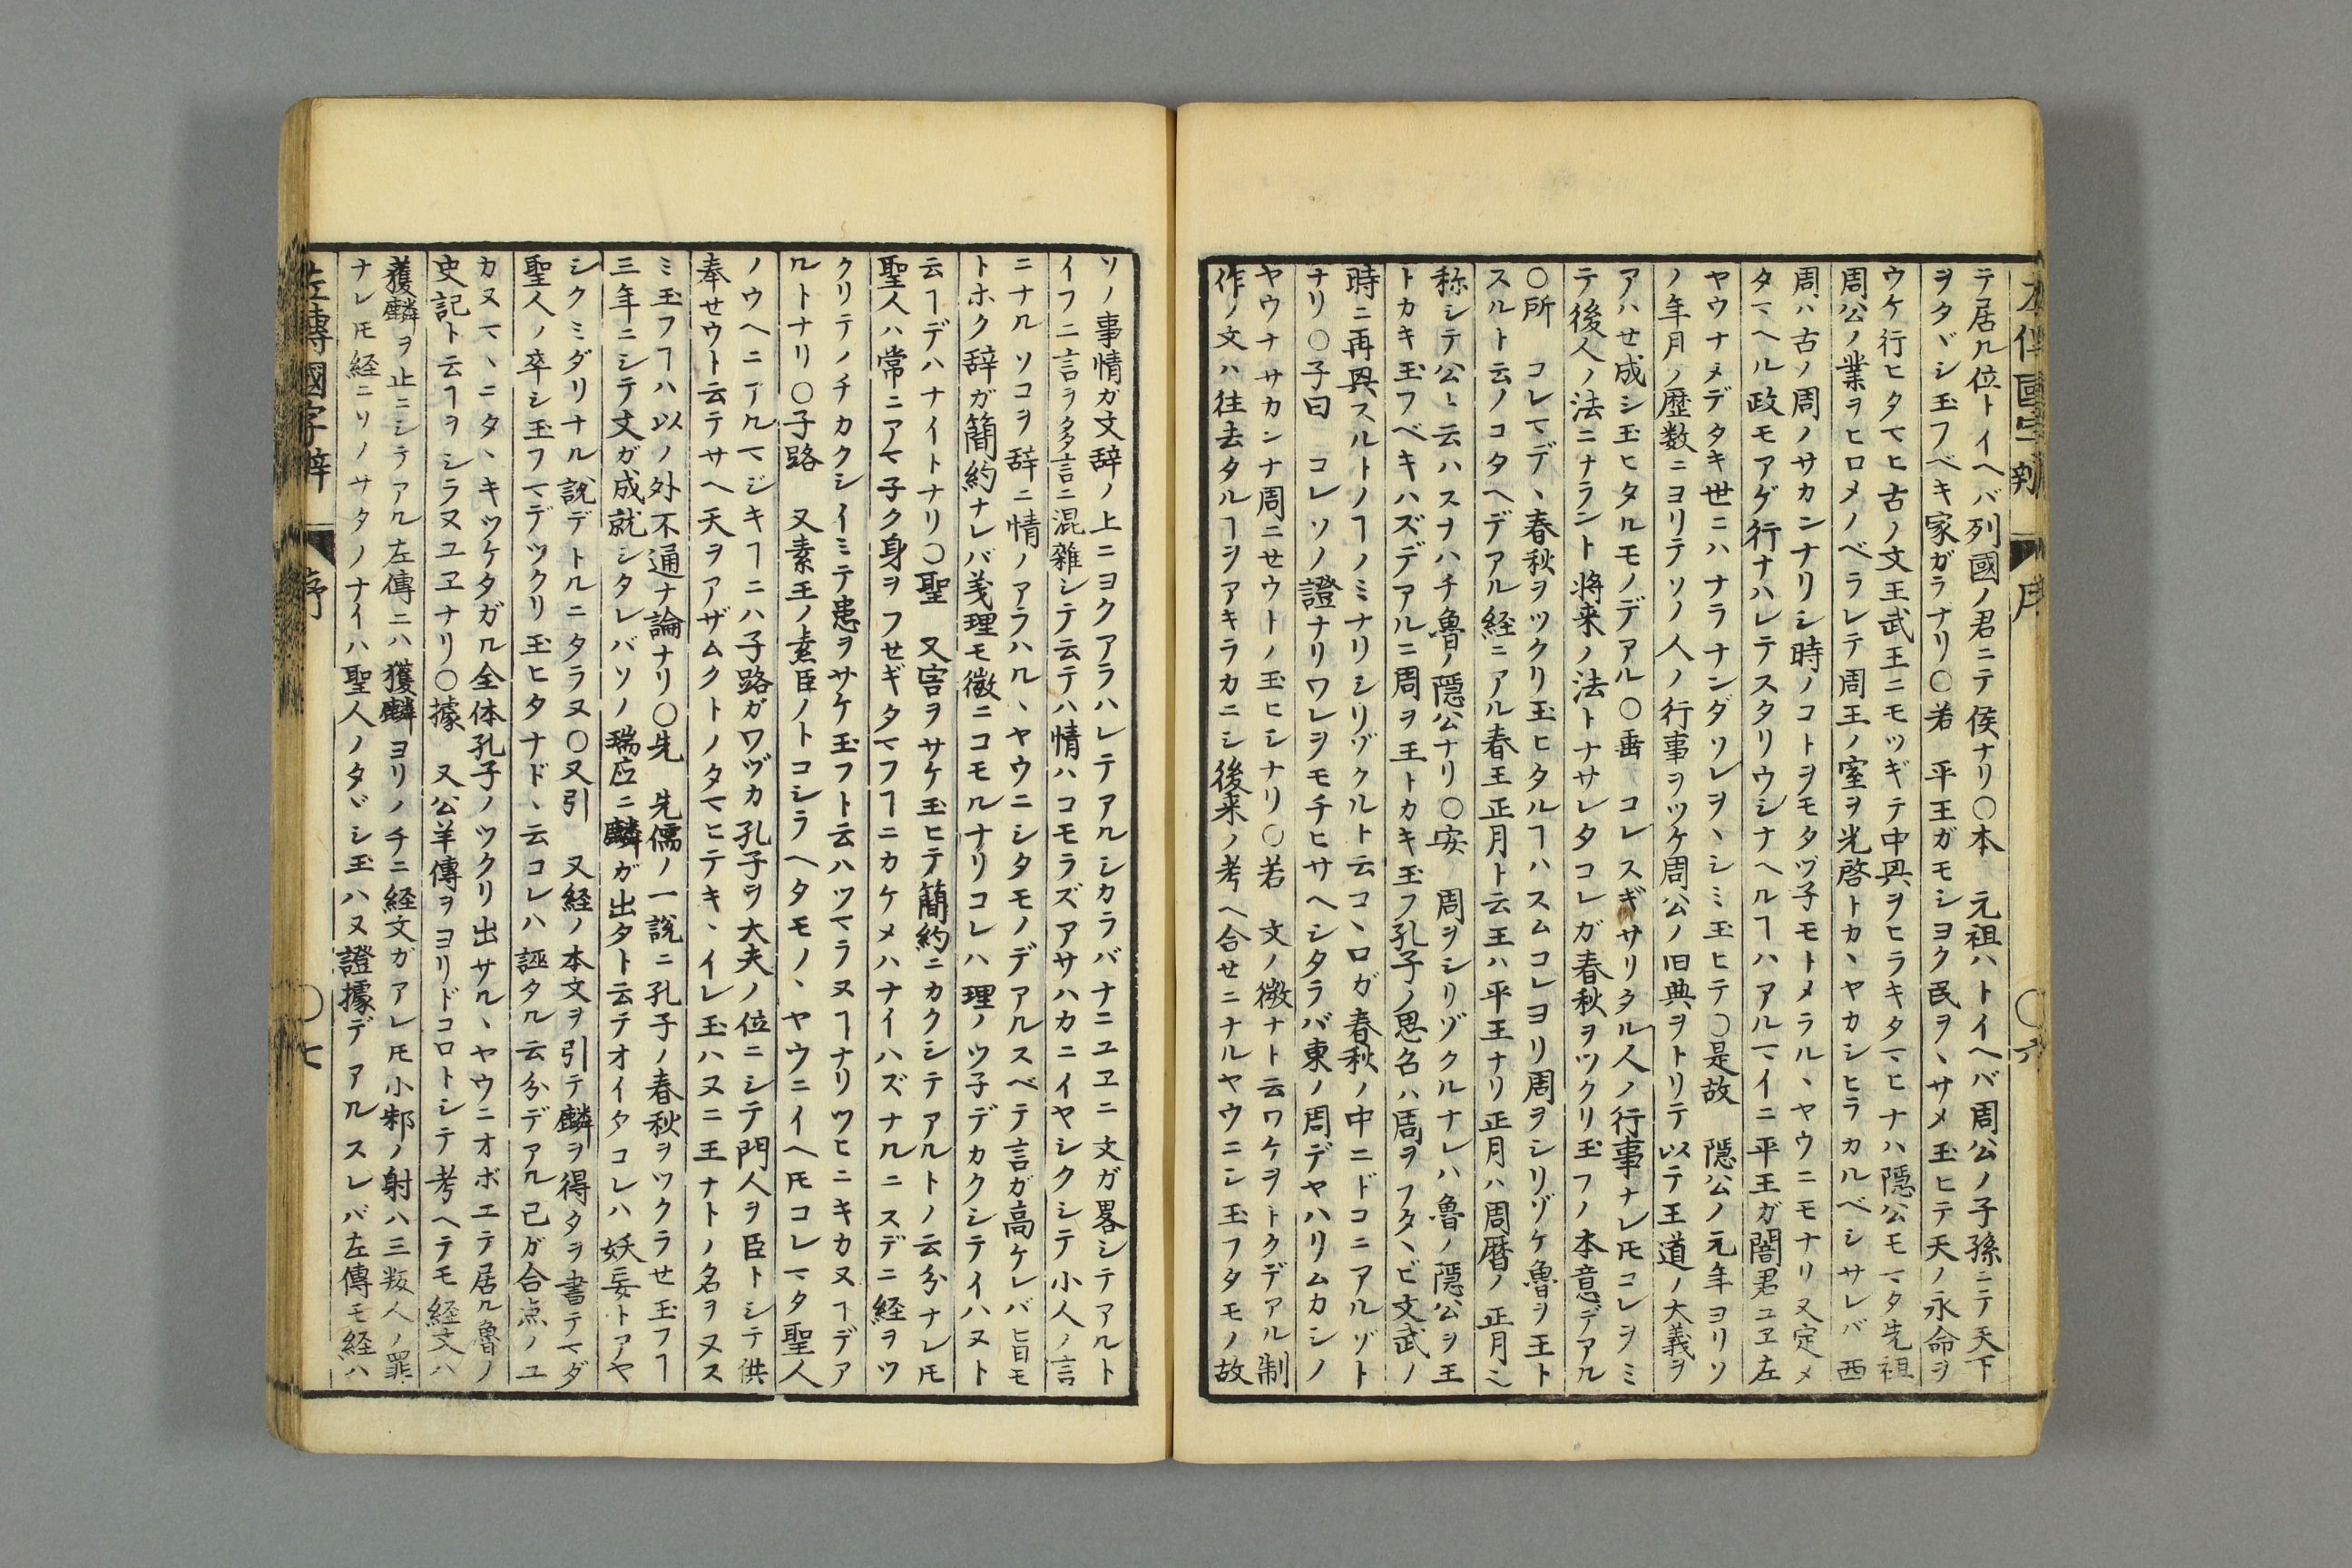 テ居ル位トイヘバ列國ノ君ニテ侯ナリ○本　元祖ハトイヘバ周公ノ子孫ニテ天下
ヲタヾシ玉フベキ家ガラナリ○若　平王ガモシヨク民ヲヽサメ玉ヒテ天ノ永命ヲ
ウケ行ヒタマヒ古ノ文王武王ニモツギテ中興ヲヒラキタマヒナハ隠公モマタ先祖
周公ノ業ヲヒロメノベラレテ周王ノ室ヲ光啓トカヽヤカシヒラカルベシサレバ西
周ハ古ノ周ノサカンナリシ時ノコトヲモタヅ子モトメラルヽヤウニモナリ又定メ
タマヘル政モアゲ行ナハレテスタリウシナヘルヿハアルマイニ平王ガ闇君ユヱ左
ヤウナメデタキ世ニハナラナンダソレヲヽシミ玉ヒテ○是故　隠公ノ元年ヨリソ
ノ年月ノ歴数ニヨリテソノ人ノ行事ヲツケ周公ノ旧典ヲトリテ以テ王道ノ大義ヲ
アハせ成シ玉ヒタルモノデアル○垂　コレスギサリタル人ノ行事ナレ𪜈コレヲミ
テ後人ノ法ニナラント将来ノ法トナサレタコレガ春秋ヲツクリ玉フノ本意デアル
○所　コレマデヽ春秋ヲツクリ玉ヒタルヿハスムコレヨリ周ヲシリゾケ魯ヲ王ト
スルト云ノコタヘデアル経ニアル春王正月ト云王ハ平王ナリ正月ハ周暦ノ正月ニ
称シテ公ト云ハスヲハチ魯ノ隠公ナリ○安　周ヲシリゾクルナレハ魯ノ隠公ヲ王
トカキ玉フベキハズデアルニ周ヲ王トカキ玉フ孔子ノ思召ハ周ヲフタヽビ文武ノ
時ニ再興スルトノヿノミナリシリゾクルト云コヽロガ春秋ノ中ニドコニアルゾト
ナリ○子曰　コレソノ證ナリワレヲモチヒサヘシタラバ東ノ周デヤハリムカシノ
ヤウナサカンナ周ニせウトノ玉ヒシナリ○若　文ノ微ナト云ワケヲトクデアル制
作ノ文ハ往去タルヿヲアキラカニシ後来ノ考ヘ合せニナルヤウニシ玉フタモノ故
ソノ事情ガ文辞ノ上ニヨクアラハレテアルシカラバナニユヱニ文ガ畧シテアルト
イフニ言ヲ多言ニ混雑シテ云テハ情ハコモラズアサハカニイヤシクシテ小人ノ言
ニナルソコヲ辞ニ情ノアラハルヽヤウニシタモノデアルスベテ言ガ高ケレバ旨モ
トホク辞ガ簡約ナレバ義理モ微ニコモルナリコレハ理ノツ子デカクシテイハヌト
云ヿデハナイトナリ○聖　又害ヲサケ玉ヒテ簡約ニカクシテアルトノ云分ナレ𪜈
聖人ハ常ニアマ子ク身ヲフせギタマフヿニカケメハナイハズナルニスデニ経ヲツ
クリテノチカクシイミテ患ヲサケ玉フト云ハツマラヌヿナリツヒニキカヌヿデア
ルトナリ○子路　又素王ノ素臣ノトコシラヘタモノヽヤウニイヘ𪜈コレマタ聖人
ノウヘニアルマジキヿニハ子路ガワヅカ孔子ヲ大夫ノ位ニシテ門人ヲ臣トシテ供
奉せウト云テサヘ天ヲアザムクトノタマヒテキヽイレ玉ハヌニ王ナトノ名ヲヌス
ミ玉フヿハ以ノ外不通ナ論ナリ○先　先儒ノ一説ニ孔子ノ春秋ヲツクラせ玉フヿ
三年ニシテ文ガ成就シタレバソノ瑞应ニ麟ガ出タト云テオイタコレハ妖妄トアヤ
シクミダリナル説デトルニタラヌ○又引　又経ノ本文ヲ引テ麟ヲ得タヲ書テマダ
聖人ノ卒シ玉フマデツクリ玉ヒタナドヽ云コレハ誣タル云分デアル己ガ合点ノユ
カヌマヽニタヽキツケタガル全体孔子ノツクリ出サルヽヤウニオボエテ居ル魯ノ
史記ト云ヿヲシラヌユヱナリ○據　又公羊傳ヲヨリドコロトシテ考ヘテモ経文ハ
獲麟ヲ止ニシテアル左傳ニハ獲麟ヨリノチニ経文ガアレ𪜈小邾ノ射ハ三叛人ノ罪
ナレ𪜈経ニソノサタノナイハ聖人ノタヾシ玉ハヌ證據デアルスレバ左傳モ経ハ
左傳國字辨　序　○七